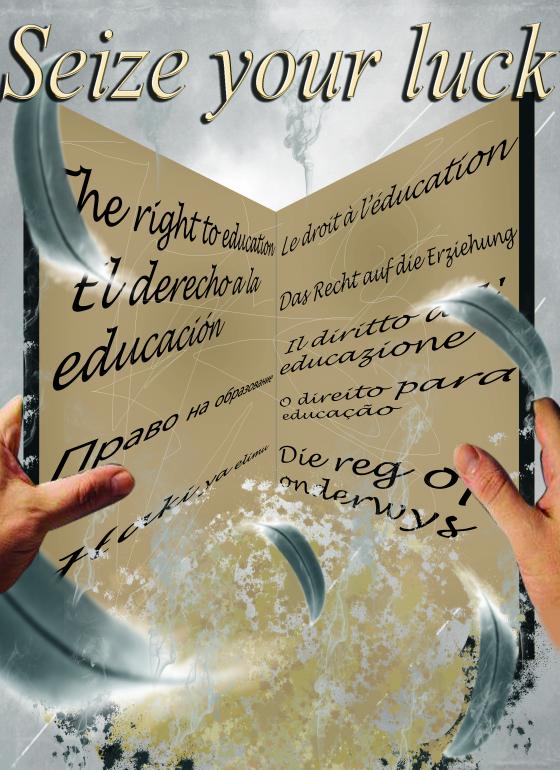 Seize your luck
The right to education
El derecho a la
educación
Право на образование
Haki ya elimu
Le droit à l'éducation
Das Recht auf die Erziehung
Il diritto
educazione
O direito para
educação
Die reg op
onderwys